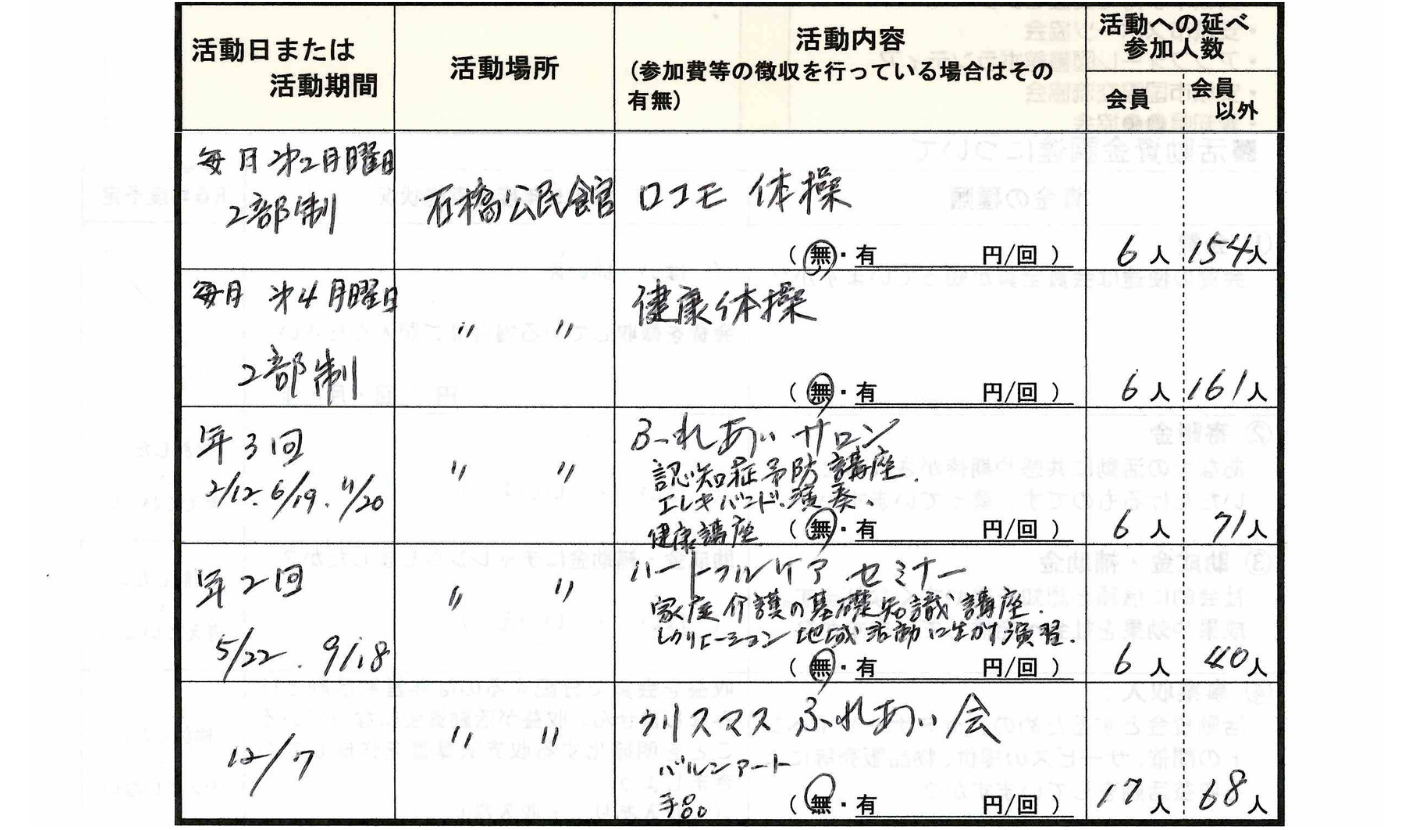 活動日または
活動期間
活動場所
活動内容
(参加費等の徴収を行っている場合はその
有無)
活動への延べ
参加人数
会員
会員
以外
毎月第2月曜日
2部制
石橋公民館
ロコモ 体操
(無・有 円/回)
6人
154人
毎月 第4月曜日
2部制
〃 〃
健康体操
(無・有 円/回)
6人
161人
年3回
2/12. 6/19. 11/20
〃 〃
ふれあいサロン
認知症予防講座.
エレキバンド.演奏.
健康講座
(無・有 円/回)
6人
71人
年2回
5/22. 9/18
〃 〃
ハートフルケア セミナー
家庭介護の基礎知識講座.
レクリエーション 地域活動に生かす演習.
(無・有 円/回)
6人
40人
12/7
〃 〃
クリスマス ふれあい会
バルンアート
手品
(無・有 円/回)
17人
68人